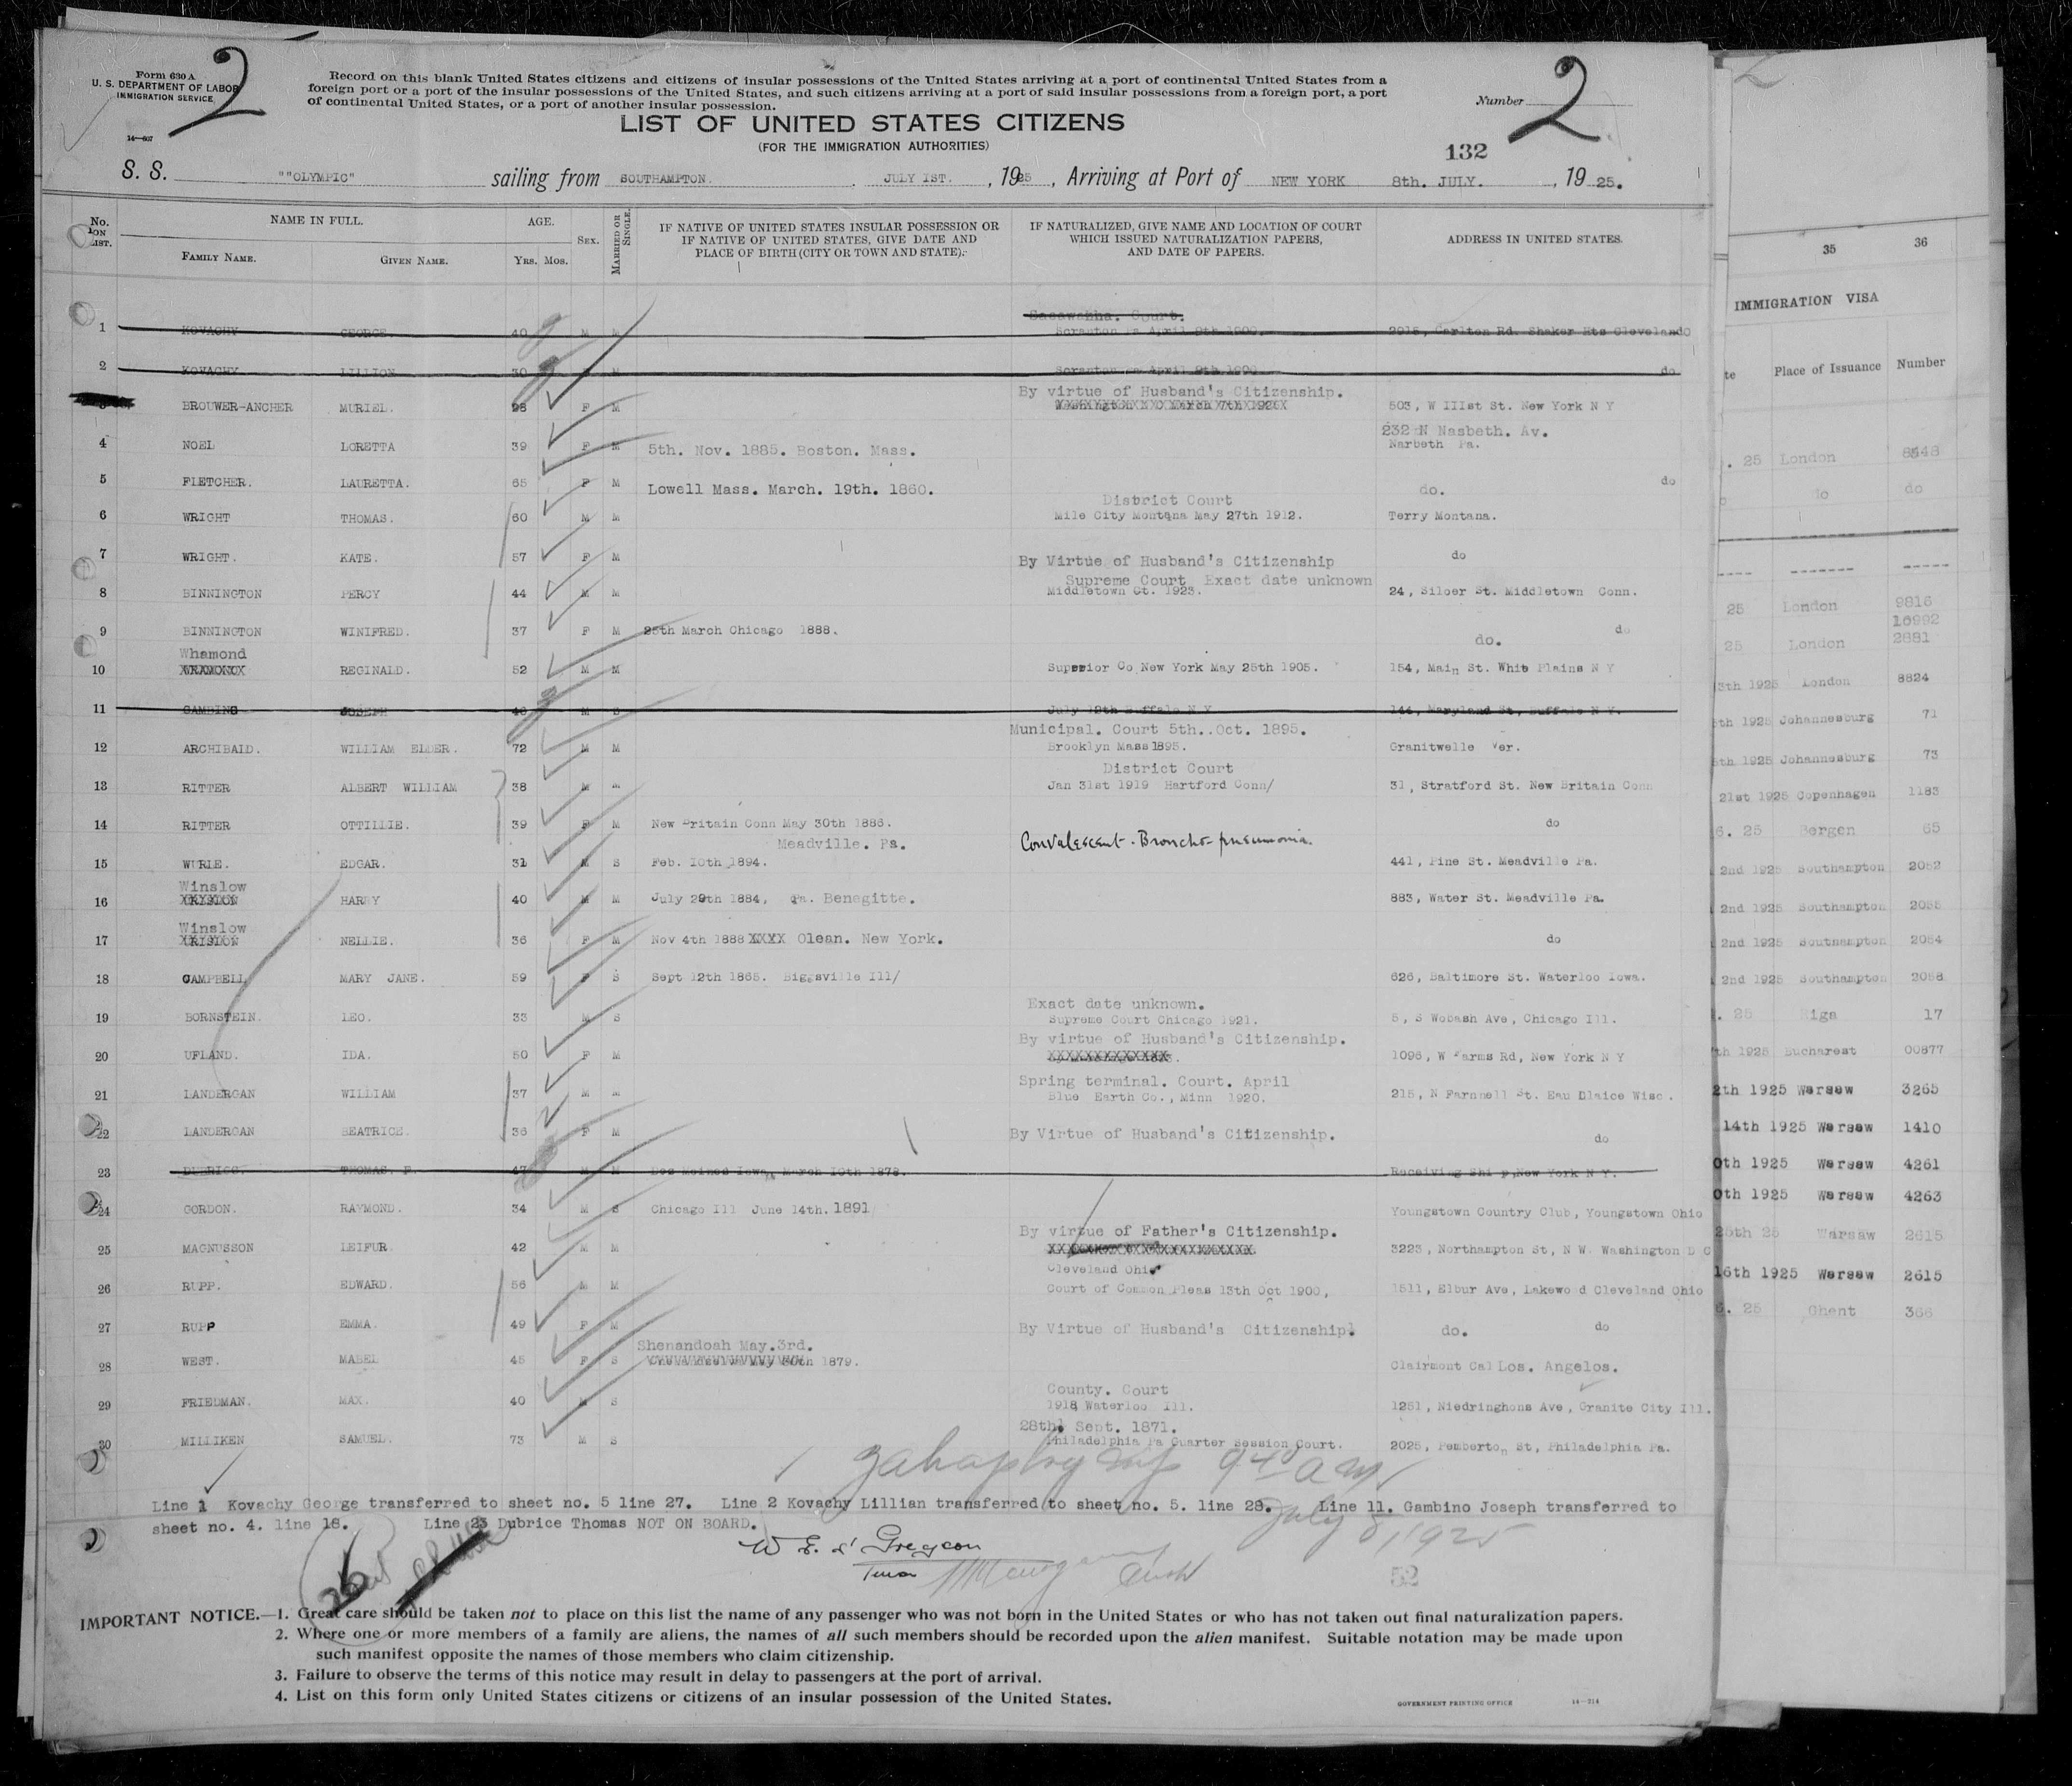 Form 630 A
U. S. DEPARTMENT OF LABOR
IMMIGRATION SERVICE
2
14—607
Record on this blank United States citizens and citizens of insular possessions of the United States arriving at a port of continental United States from a
foreign port or a port of the insular possessions of the United States, and such citizens arriving at a port of said insular possessions from a foreign port, a port
of continental United States, or a port of another insular possession.
Number 2
LIST OF UNITED STATES CITIZENS
(FOR THE IMMIGRATION AUTHORITIES)
132
S. S. ""OLYMPIC" sailing from SOUTHAMPTON. JULY 1ST. , 1925 , Arriving at Port of NEW YORK 8th. JULY. , 19 25.
No. ON LIST. NAME IN FULL. FAMILY NAME. GIVEN NAME. AGE. YRS. MOS. SEX. MARRIED OR SINGLE. IF NATIVE OF UNITED STATES INSULAR POSSESSION OR IF NATIVE OF UNITED STATES, GIVE DATE AND PLACE OF BIRTH (CITY OR TOWN AND STATE). IF NATURALIZED, GIVE NAME AND LOCATION OF COURT WHICH ISSUED NATURALIZATION PAPERS, AND DATE OF PAPERS. ADDRESS IN UNITED STATES.
1 KOVACHY GEORGE 40 M M Scranton Pa April 9th 1900. 2915, Carlton Rd. Shaker Hts Cleveland O
2 KOVACHY LILLION 30 M Scranton Pa April 9th 1900 do
By virtue of Husband's Citizenship.
BROUWER-ANCHER MURIEL. 28 F M 503, W IIIst St. New York N Y
232 N Nasbeth. Av.
4 NOEL LORETTA 39 F M 5th. Nov. 1885. Boston. Mass. Narbeth Pa.
5 FLETCHER. LAURETTA. 65 F M Lowell Mass. March. 19th. 1860. do. do
District Court
6 WRIGHT THOMAS. 60 M M Mile City Montana May 27th 1912. Terry Montana.
7 WRIGHT. KATE. 57 F M By Virtue of Husband's Citizenship do
Supreme Court Exact date unknown
8 BINNINGTON PERCY 44 M M Middletown Ct. 1923. 24, Siloer St. Middletown Conn.
9 BINNINGTON WINIFRED. 37 F M 25th March Chicago 1888. do. do
Whamond
10 REGINALD. 52 M M Superior Co New York May 25th 1905. 154, Main St. White Plains N Y
11 GAMBINO JOSEPH 46 M S July 12th Buffalo N Y 144, Maryland St, Buffalo N Y.
Municipal. Court 5th. Oct. 1895.
12 ARCHIBALD. WILLIAM ELDER. 72 M M Brooklyn Mass 1895. Granitwelle Ver.
District Court
13 RITTER ALBERT WILLIAM 38 M M Jan 31st 1919 Hartford Conn/ 31, Stratford St. New Britain Conn
14 RITTER OTTILLIE. 39 F M New Britain Conn May 30th 1886. do
Meadville. Pa. Convalescent - Broncho-pneumonia.
15 WURLE. EDGAR. 31 M S Feb. 10th 1894. 441, Pine St. Meadville Pa.
Winslow
16 HARRY 40 M M July 29th 1884, Pa. Benegitte. 883, Water St. Meadville Pa.
Winslow
17 NELLIE. 36 F M Nov 4th 1888 XXXX Olean. New York. do
18 CAMPBELL MARY JANE. 59 F S Sept 12th 1865. Biggsville Ill/ 626, Baltimore St. Waterloo Iowa.
Exact date unknown.
19 BORNSTEIN. LEO. 33 M S Supreme Court Chicago 1921. 5, S Wobash Ave, Chicago Ill.
By virtue of Husband's Citizenship.
20 UFLAND. IDA. 50 F M 1096, W Farms Rd, New York N Y
Spring terminal. Court. April
21 LANDERGAN WILLIAM 37 M M Blue Earth Co., Minn 1920. 215, N Farnnell St. Eau Dlaice Wisc.
22 LANDERGAN BEATRICE. 36 F M By Virtue of Husband's Citizenship. do
23 DUBRICE. THOMAS. F. 47 M M Des Moines Iowa, March 10th 1878. Receiving Ship, New York N Y.
24 GORDON. RAYMOND. 34 M S Chicago Ill June 14th. 1891 Youngstown Country Club, Youngstown Ohio
By virtue of Father's Citizenship.
25 MAGNUSSON LEIFUR 42 M M 3223, Northampton St, N W. Washington D C
Cleveland Ohio
26 RUPP. EDWARD. 56 M M Court of Common Pleas 13th Oct 1900, 1511, Elbur Ave, Lakewo d Cleveland Ohio
27 RUPP EMMA. 49 F M By Virtue of Husband's Citizenship. do. do
Shenandoah May.3rd.
28 WEST. MABEL 45 F S 1879. Clairmont Cal Los. Angelos.
County. Court
29 FRIEDMAN. MAX. 40 M S 1918 Waterloo Ill. 1251, Niedringhons Ave, Granite City Ill.
28th. Sept. 1871.
30 MILLIKEN SAMUEL. 73 M S Philadelphia Pa Quarter Session Court. 2025, Pemberton St, Philadelphia Pa.
940 am
July 8, 1925
Line 1 Kovachy George transferred to sheet no. 5 line 27. Line 2 Kovachy Lillian transferred to sheet no. 5. line 28. Line 11. Gambino Joseph transferred to
sheet no. 4. line 18. Line 23 Dubrice Thomas NOT ON BOARD.
26
52
IMPORTANT NOTICE.—1. Great care should be taken not to place on this list the name of any passenger who was not born in the United States or who has not taken out final naturalization papers.
2. Where one or more members of a family are aliens, the names of all such members should be recorded upon the alien manifest. Suitable notation may be made upon
such manifest opposite the names of those members who claim citizenship.
3. Failure to observe the terms of this notice may result in delay to passengers at the port of arrival.
4. List on this form only United States citizens or citizens of an insular possession of the United States.
GOVERNMENT PRINTING OFFICE 14—314
35 36
IMMIGRATION VISA
te Place of Issuance Number
. 25 London 8448
do do
25 London 9816
10992
25 London 2881
3th 1925 London 8824
5th 1925 Johannesburg 71
5th 1925 Johannesburg 73
21st 1925 Copenhagen 1183
6. 25 Bergen 65
2nd 1925 Southampton 2052
2nd 1925 Southampton 2055
2nd 1925 Southampton 2054
2nd 1925 Southampton 2058
. 25 Riga 17
th 1925 Bucharest 00877
2th 1925 Warsaw 3265
14th 1925 Warsaw 1410
0th 1925 Warsaw 4261
0th 1925 Warsaw 4263
25th 25 Warsaw 2615
16th 1925 Warsaw 2615
6. 25 Ghent 366